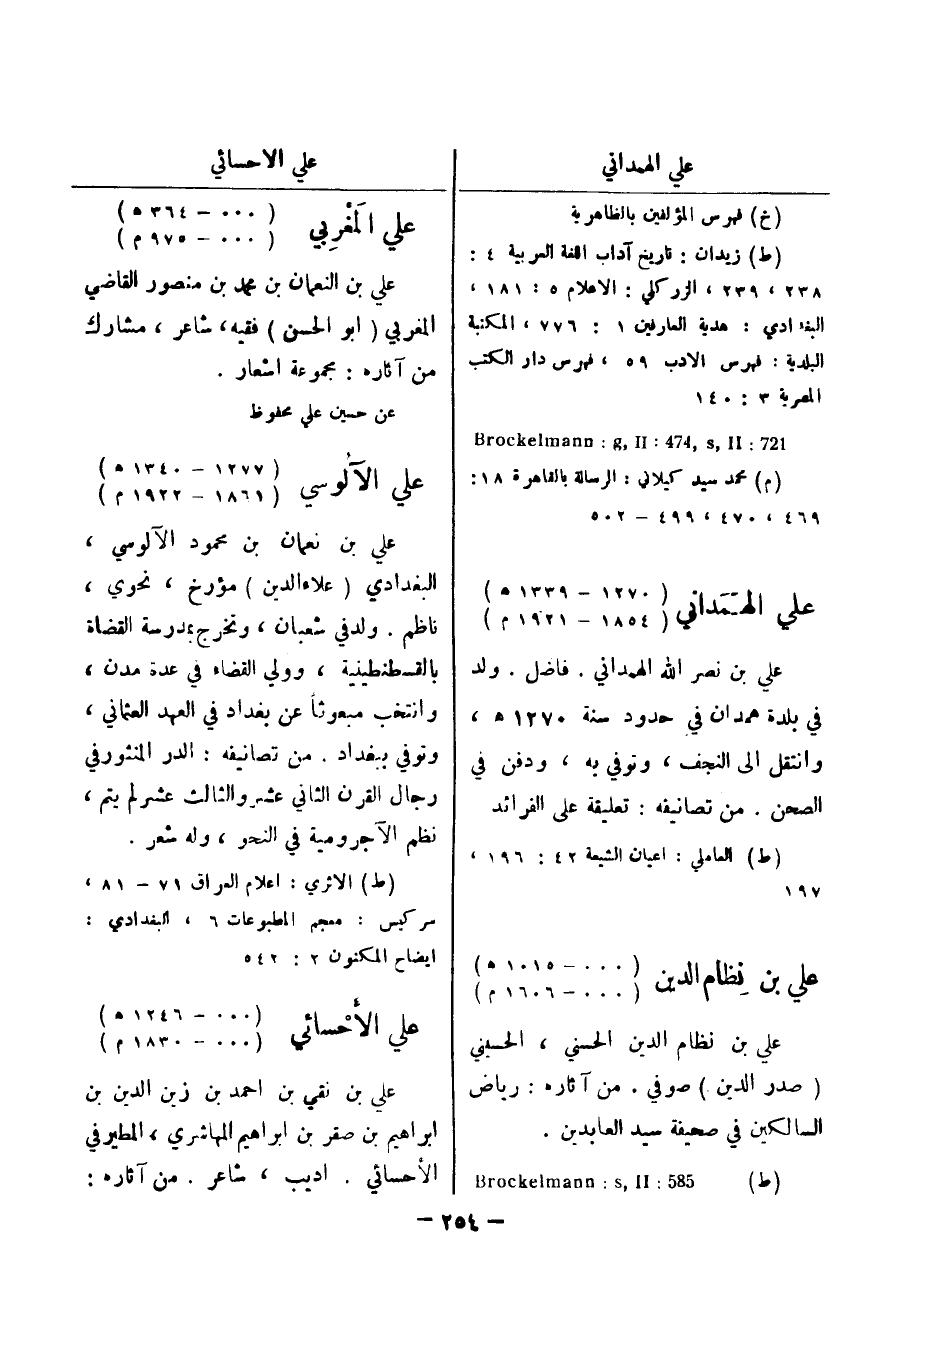 علي الهمداني
(خ) فهرس المؤلفين بالظاهرية
(ط) زيدان : تاريخ آداب اللغة العربية ٤ :
٢٣٨ ، ٢٣٩ ، الزركلي : الاعلام ٥ : ١٨١ ،
البغدادي : هدية العارفين ١ : ٧٧٦ ، المكتبة
البلدية : فهرس الادب ٥٩ ، فهرس دار الكتب
المصرية ٣ : ١٤٠
Brockelmann : g, II : 474, s, II : 721
(م) محمد سيد كيلاني : الرسالة بالقاهرة ١٨ :
٤٦٩ ، ٤٧٠ ، ٤٩٩ – ٥٠٢
علي الهَمَداني ( ١٢٧٠ – ١٣٣٩ ه )
( ١٨٥٤ – ١٩٢١ م )
علي بن نصر الله الهمداني . فاضل . ولد
في بلدة همدان في حدود سنة ١٢٧٠ ه ،
وانتقل الى النجف ، وتوفي به ، ودفن في
الصحن . من تصانيفه : تعليقة على الفرائد
(ط) العاملي : اعيان الشيعة ٤٢ : ١٩٦ ،
١٩٧
علي بن نِظام الدين ( ٠٠٠ – ١٠١٥ ه )
( ٠٠٠ – ١٦٠٦ م )
علي بن نظام الدين الحسني ، الحسيني
( صدر الدين ) صوفي . من آثاره : رياض
السالكين في صحيفة سيد العابدين .
(ط) Brockelmann : s, II : 585
علي الاحسائي
علي المَغْرِبي ( ٠٠٠ – ٣٦٤ ه )
( ٠٠٠ – ٩٧٥ م )
علي بن النعمان بن محمد بن منصور القاضي
المغربي ( ابو الحسن ) فقيه ، شاعر ، مشارك
من آثاره : مجموعة اشعار .
عن حسين علي محفوظ
علي الآلُوسي ( ١٢٧٧ – ١٣٤٠ ه )
( ١٨٦١ – ١٩٢٢ م )
علي بن نعمان بن محمود الآلوسي ،
البغدادي ( علاءالدين ) مؤرخ ، نحوي ،
ناظم . ولدفي شعبان ، وتخرج بمدرسة القضاة
بالقسطنطينية ، وولي القضاء في عدة مدن ،
وانتخب مبعوثاً عن بغداد في العهد العثماني ،
وتوفي ببغداد . من تصانيفه : الدر المنثورفي
رجال القرن الثاني عشر والثالث عشرلم يتم ،
نظم الآجرومية في النحو ، وله شعر .
(ط) الاثري : اعلام العراق ٧١ – ٨١ ،
سركيس : معجم المطبوعات ٦ ، البغدادي :
ايضاح المكنون ٢ : ٥٤٢
علي الأَحْسائي ( ٠٠٠ – ١٢٤٦ ه )
( ٠٠٠ – ١٨٣٠ م )
علي بن نقي بن احمد بن زين الدين بن
ابراهيم بن صقر بن ابراهيم المهاشري ، المطيرفي
الأحسائي . اديب ، شاعر . من آثاره :
– ٢٥٤ –